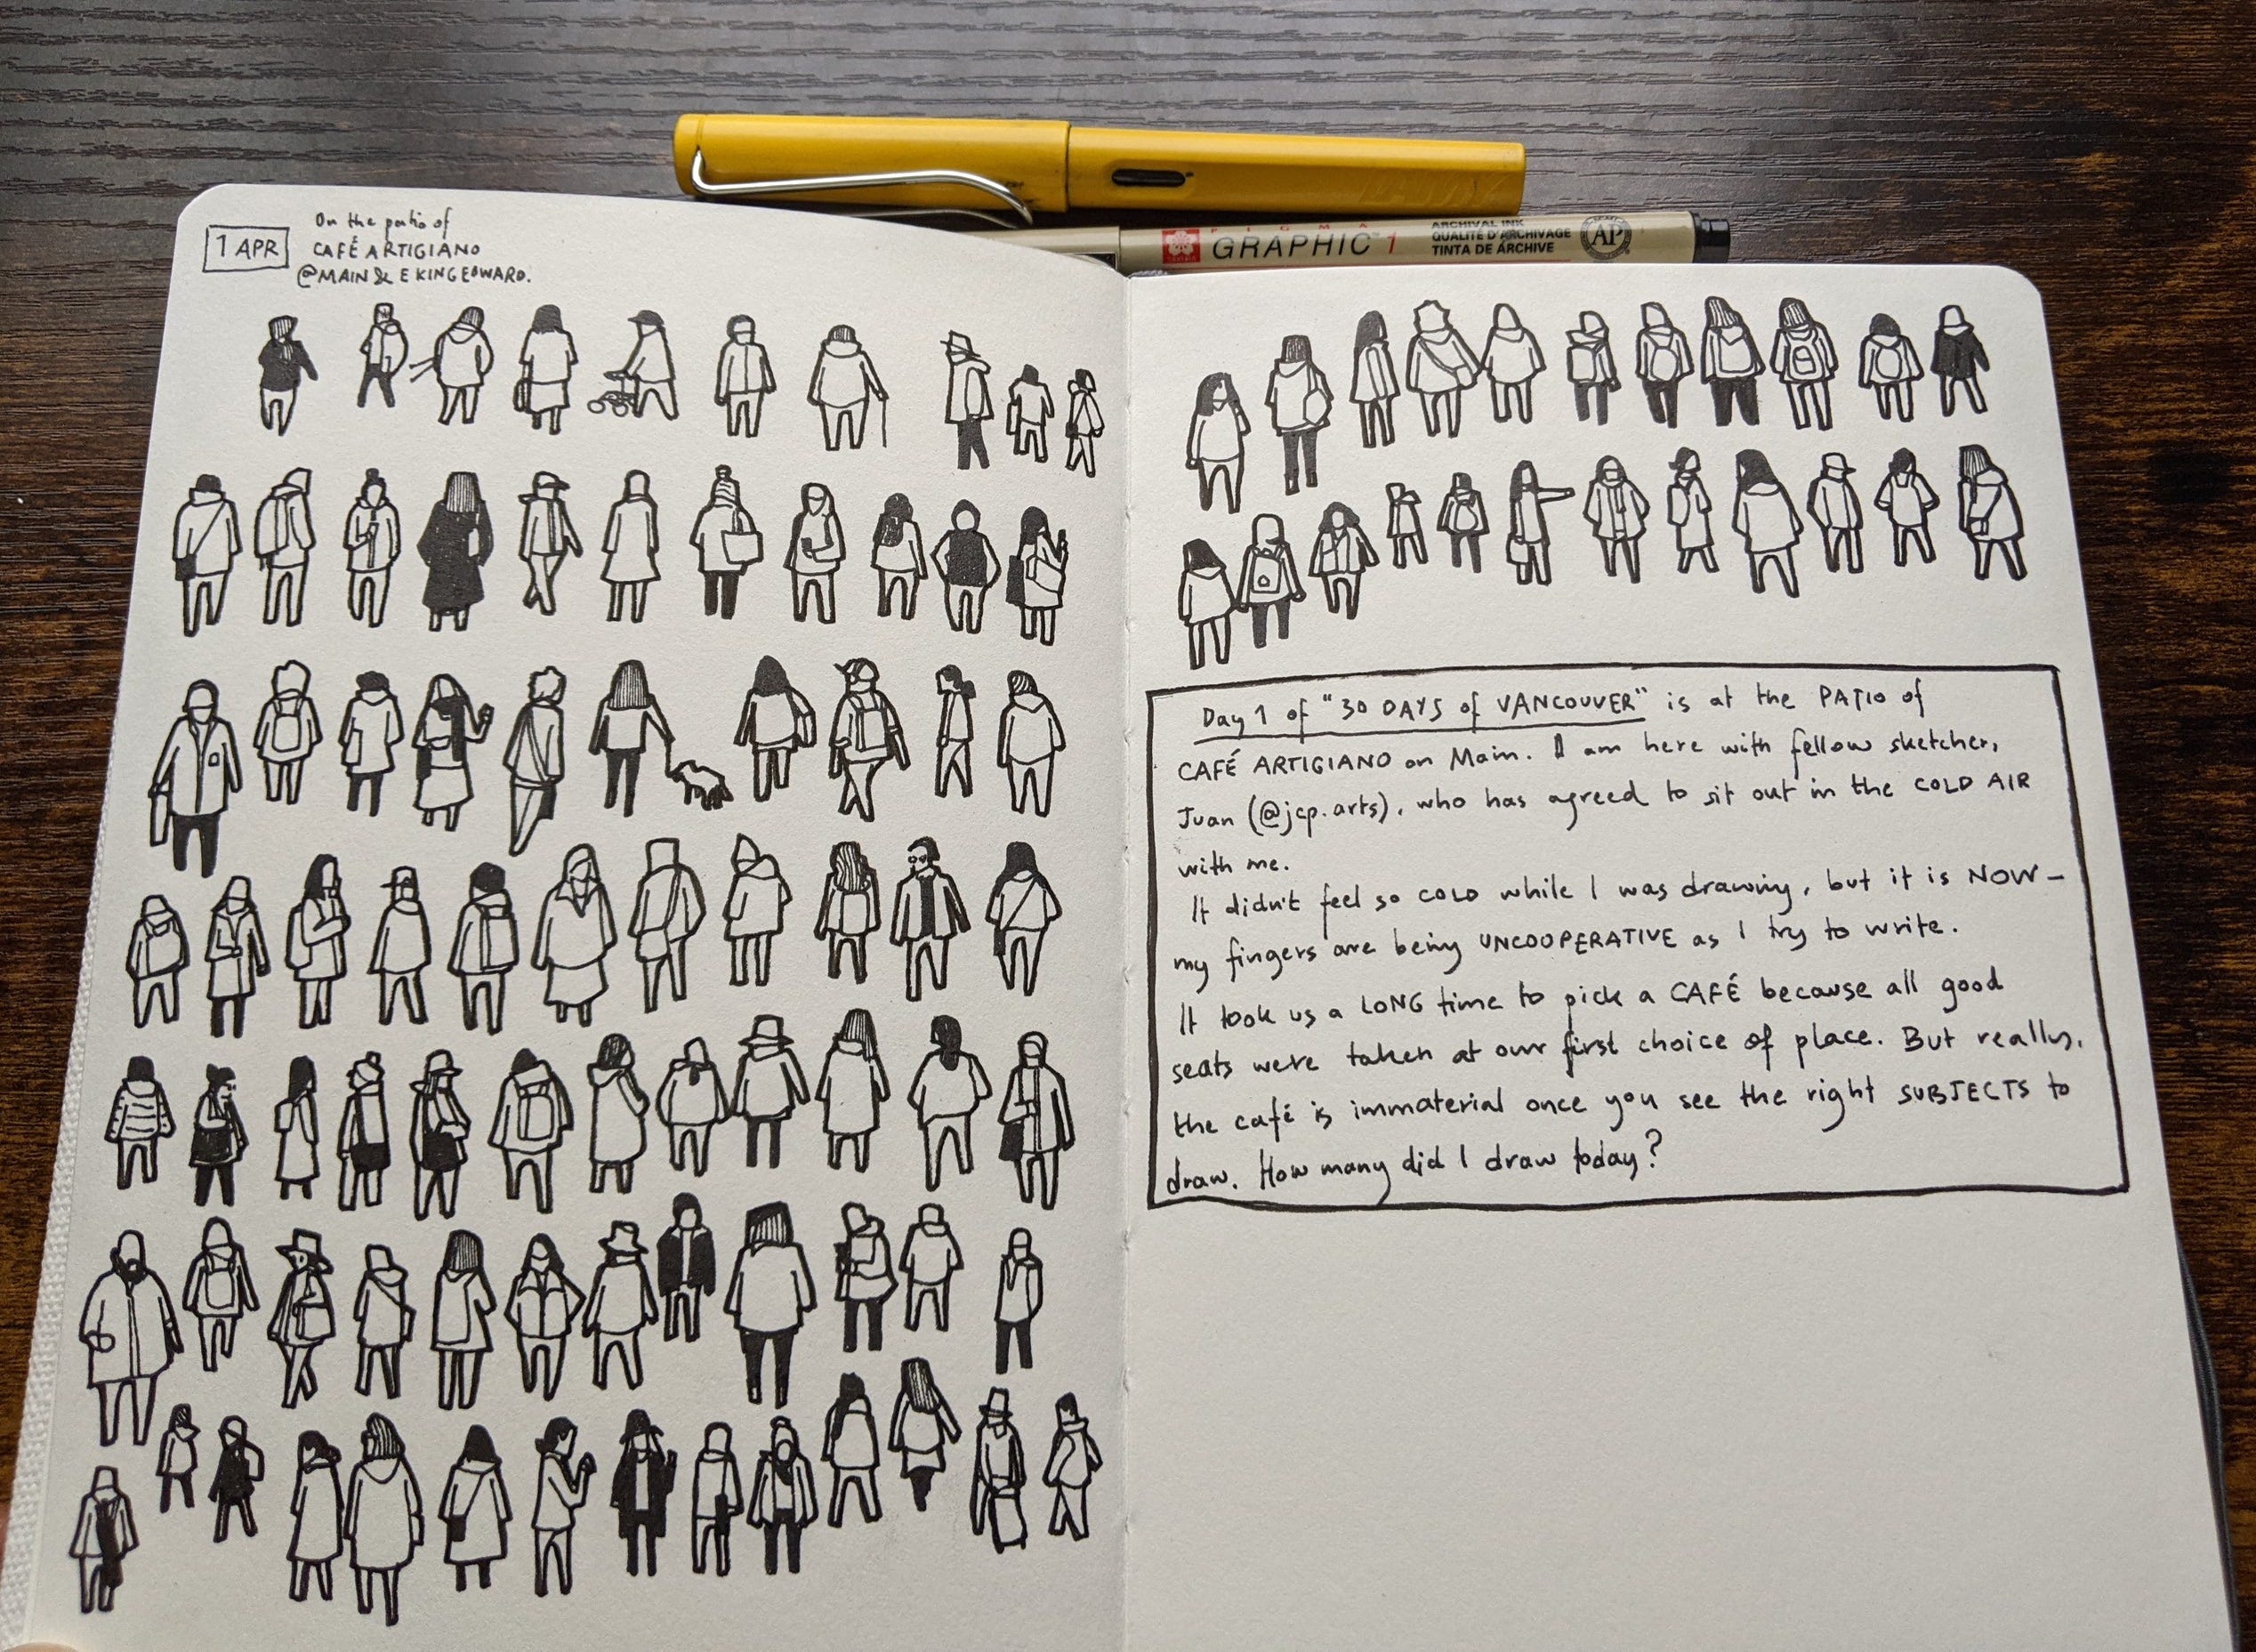 1 APR
On the patio of
CAFÉ ARTIGIANO
@MAIN & E KING EDWARD.
PIGMA
GRAPHIC™ 1
ARCHIVAL INK
QUALITÉ D'ARCHIVAGE
TINTA DE ARCHIVE
AP
Day 1 of "30 DAYS of VANCOUVER" is at the PATIO of
CAFÉ ARTIGIANO on Main. I am here with fellow sketcher,
Juan (@jcp.arts), who has agreed to sit out in the COLD AIR
with me.
It didn't feel so COLD while I was drawing, but it is NOW –
my fingers are being UNCOOPERATIVE as I try to write.
It took us a LONG time to pick a CAFÉ because all good
seats were taken at our first choice of place. But really,
the café is immaterial once you see the right SUBJECTS to
draw. How many did I draw today?